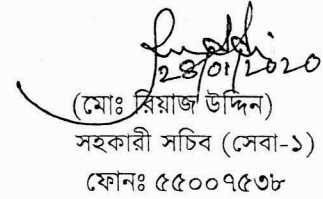 28/01/2020
(মোঃ রিয়াজ উদ্দিন)
সহকারী সচিব (সেবা-১)
ফোনঃ ৫৫০০৭৫৩৮